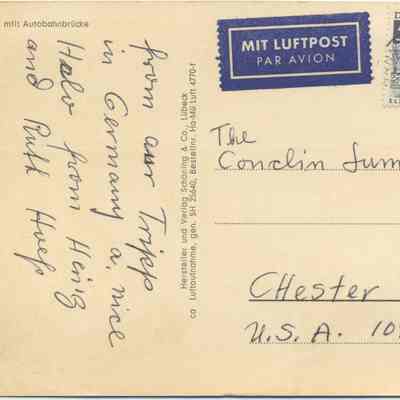 mtlt Autobahnbrücke
from aur Tripp
in Germany a. nice
Halo from Heinz
and Ruth
Hersteller und Verlag Schöning & Co., Lübeck
ca Luftaufnahme, gen. SH 25640, Bestellnr. Ha-Mü Luft 4770-f
MIT LUFTPOST
PAR AVION
The
Conclin
CHester
U.S.A. 10